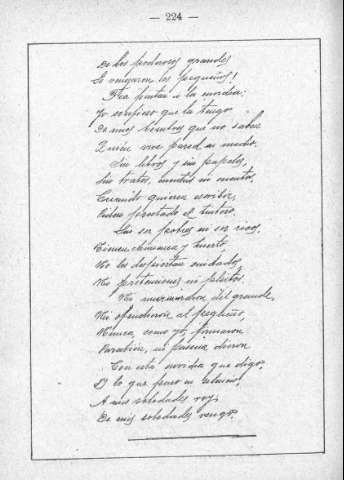 — 224 —
De los poderosos grandes
Se vengaron los pequeños!
Fea pintan a la envidia;
Yo confieso que la tengo
De unos hombres que no saben
Quien vive pared en medio.
Sin libros y sin papeles,
Sin tratos, cuentas ni cuentos,
Cuando quieren escribir,
Piden prestado el tintero.
Sin ser pobres ni ser ricos,
Tienen chimenea y huerto,
No los despiertan cuidados,
Ni pretensiones, ni pleitos.
Ni murmuraron del grande,
Ni ofendieron al pequeño,
Nunca, como yo, firmaron
Parabién, ni pascuas dieron.
Con esta envidia que digo,
Y lo que paso en silencio,
A mis soledades voy,
De mis soledades vengo.